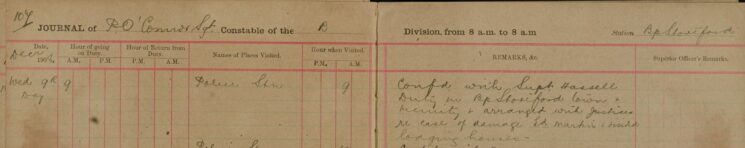 107
JOURNAL of P O'Connor Sgt Constable of the B Division, from 8 a.m. to 8 a.m Station Bp Stortford
Date, Hour of going on Duty. Hour of Return from Duty. Names of Places Visited. Hour when Visited. REMARKS, &c. Superior Officer's Remarks.
Decr 190
A.M. P.M. A.M. P.M. P.M. A.M.
Wed 9th 9 Police Stn 9 Confd with Supt Hassell
Day Duty in Bp Stortford Town &
vicinity & arranged with Justices
re case of damage
lodging houses
Police Stn